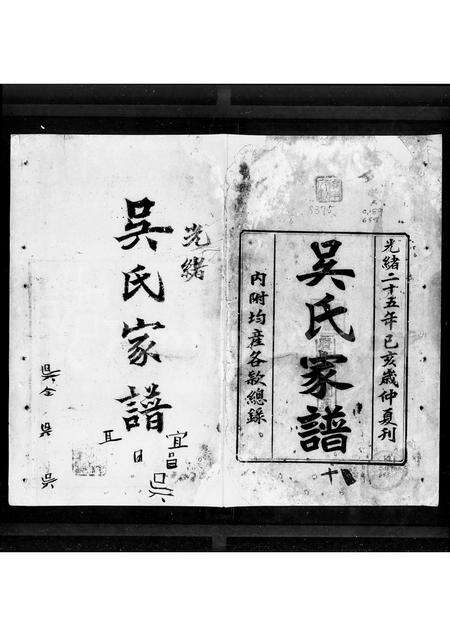 光緒二十五年已亥歲仲夏刊
吳氏家譜
內附均產各款總錄。
十
8375
光緒
吳氏家譜
宜昌
吳
吳
吳